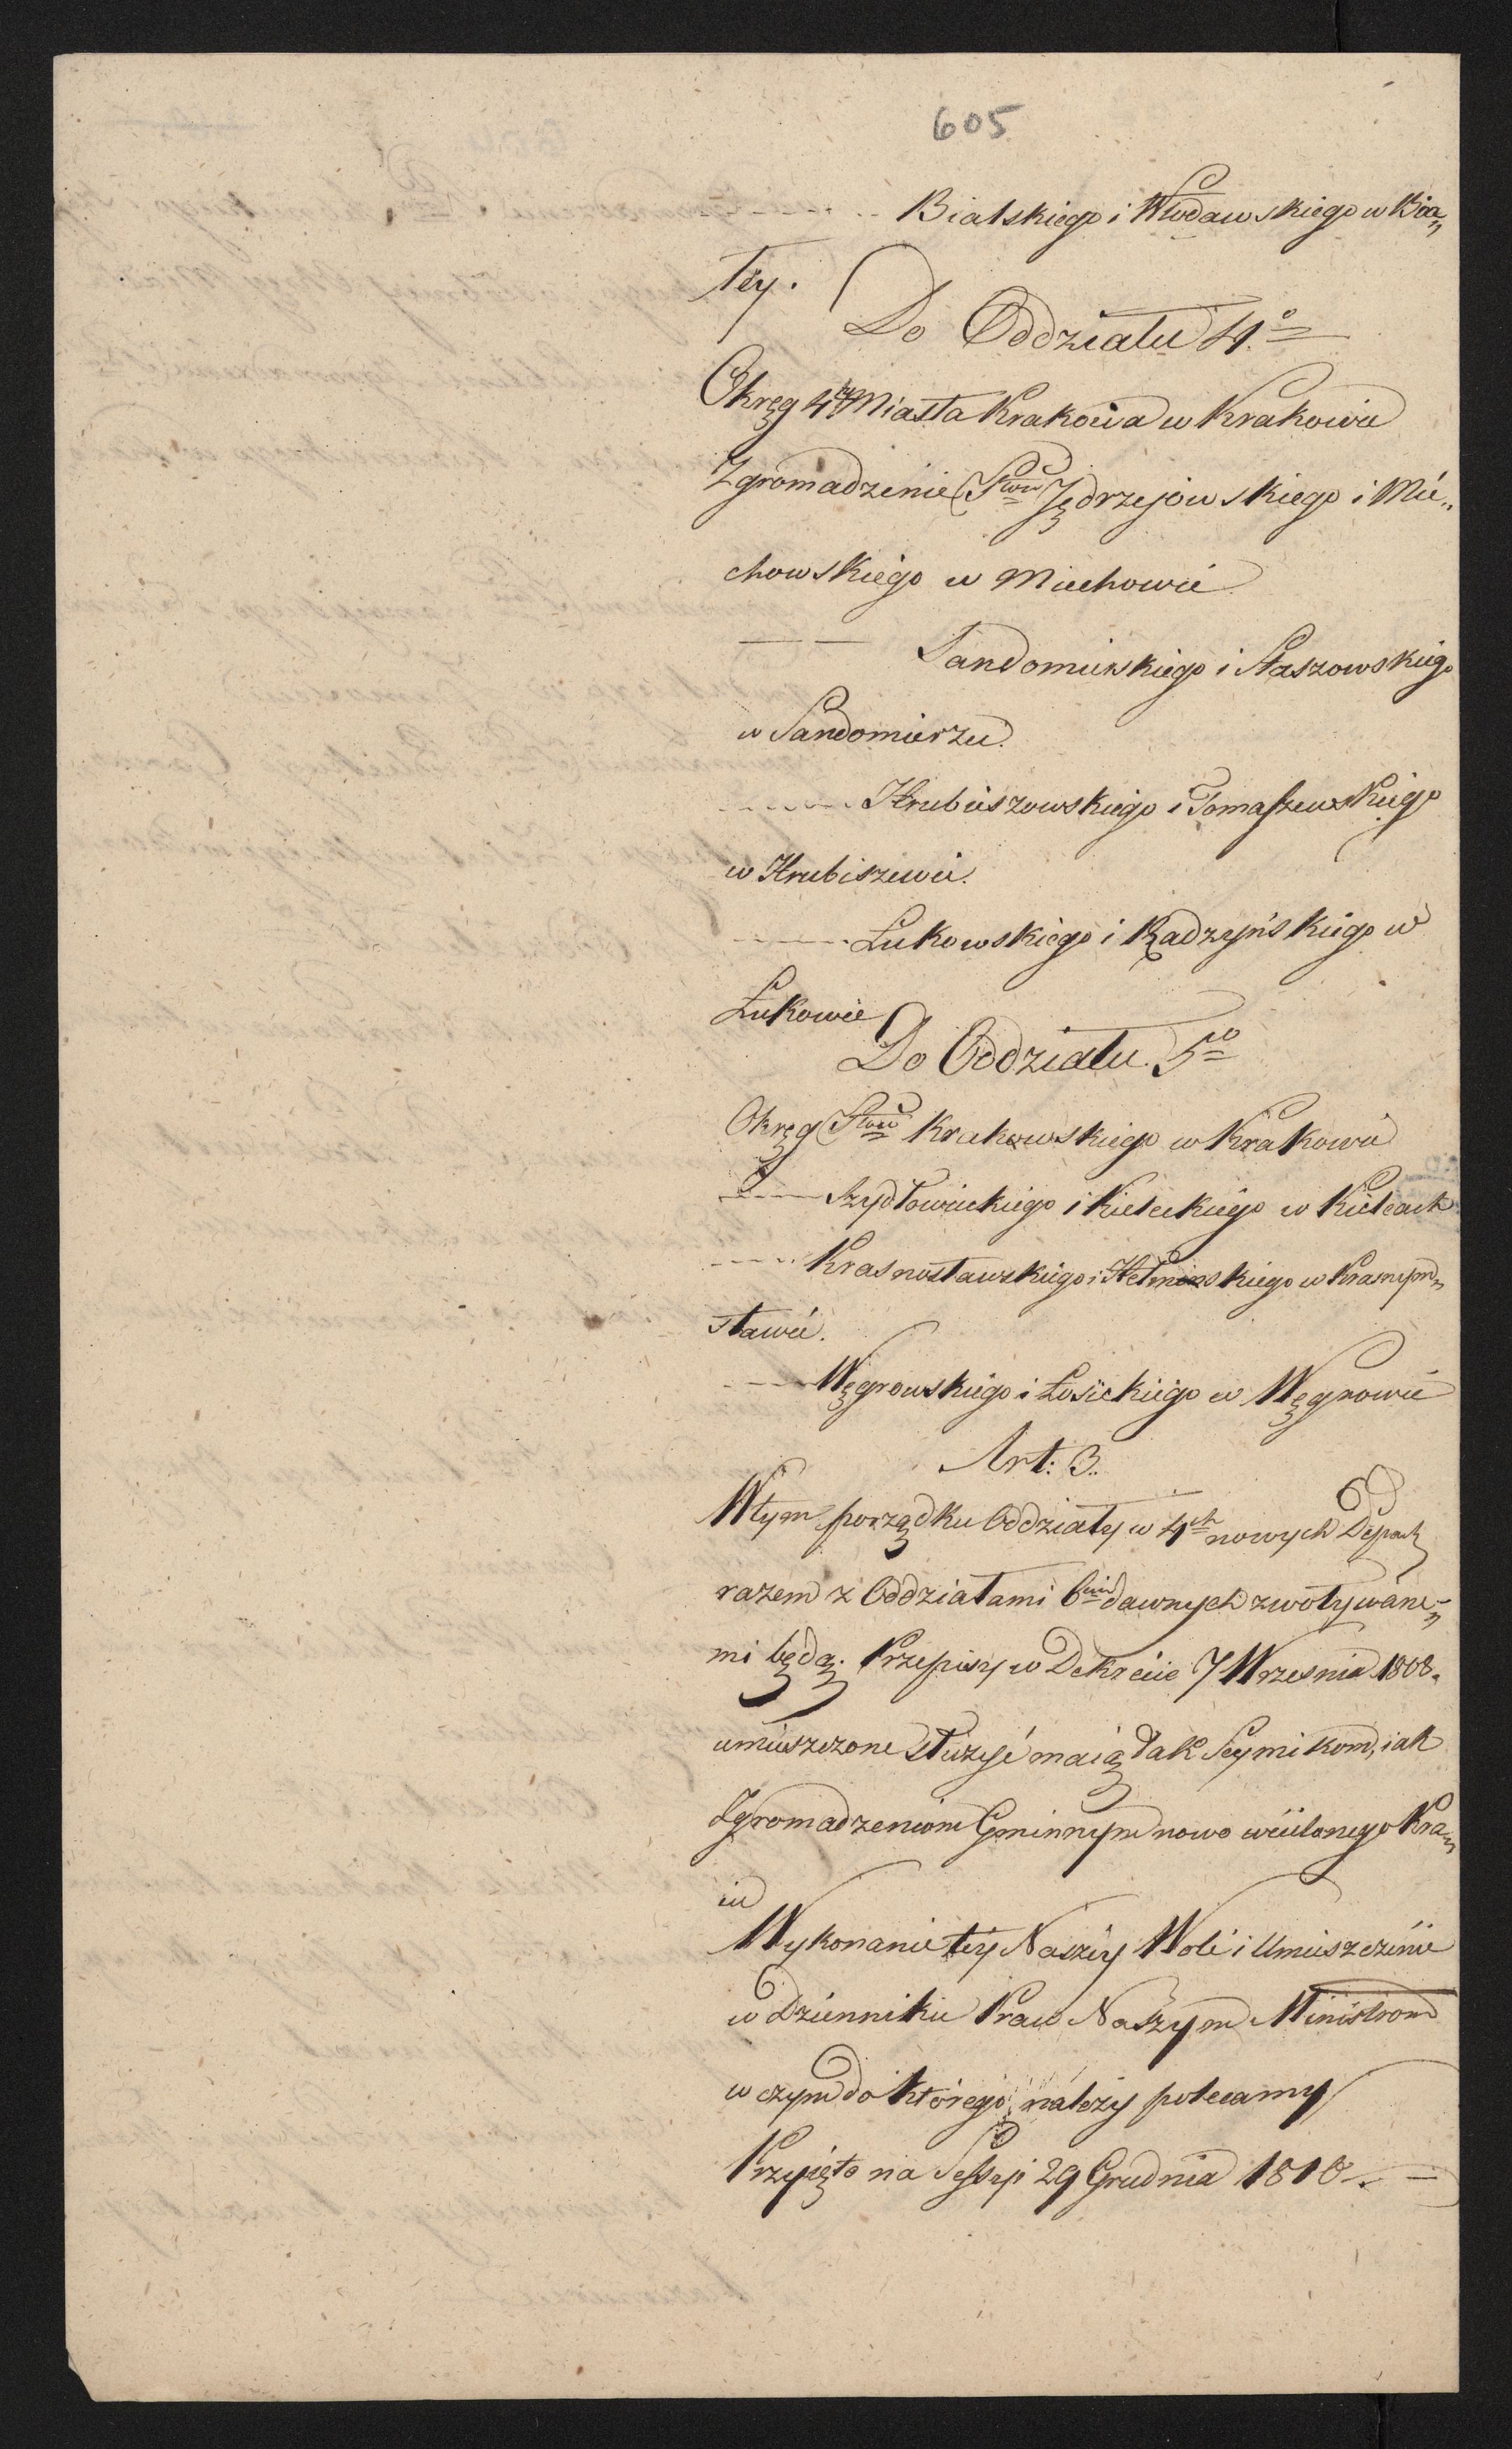 605
- - - - - Bialskiego i Włodawskiego w Bia„
łey.
Do Oddziału 4º
Okręg 4ty Miasta Krakowa w Krakowie
Zgromadzenie Ptow Jędrzejowskiego i Mie„
chowskiego w Miechowie
— — Sandomirskiego i Staszowskiego
w Sandomierzu.
- - - - - Hrubieszowskiego i Tomaszewskiego
w Hrubiszewie.
- - - - - Łukowskiego i Radzyńskiego w
Łukowie
Do Oddziału 5go
Okręg Ptow Krakowskiego w Krakowie
- - - - Szydłowieckiego i Kieleckiego w Kielcach
- - - - Krasnostawskiego i Hełmskiego w Krasnym„
stawie.
- - - Węgrowskiego i Łosickiego w Węgrowie
Art: 3.
W tym porządku Oddziały w 4ch nowych Depart
razem z Oddziałami 6ciu dawnych zwoływane„
mi będą. Przepisy w Dekrecie 7 Wrzesnia 1808.
umieszczone służyć maią tak Seymikom, iak
Zgromadzeniom Gminnym nowo wcielonego Kra„
iu
Wykonanie tey Naszey Woli i Umieszczenie
w Dzienniku Praw Naszym Ministrom
w czym do którego należy polecamy
Przyięto na Sessyi 29 Grudnia 1810 -. —